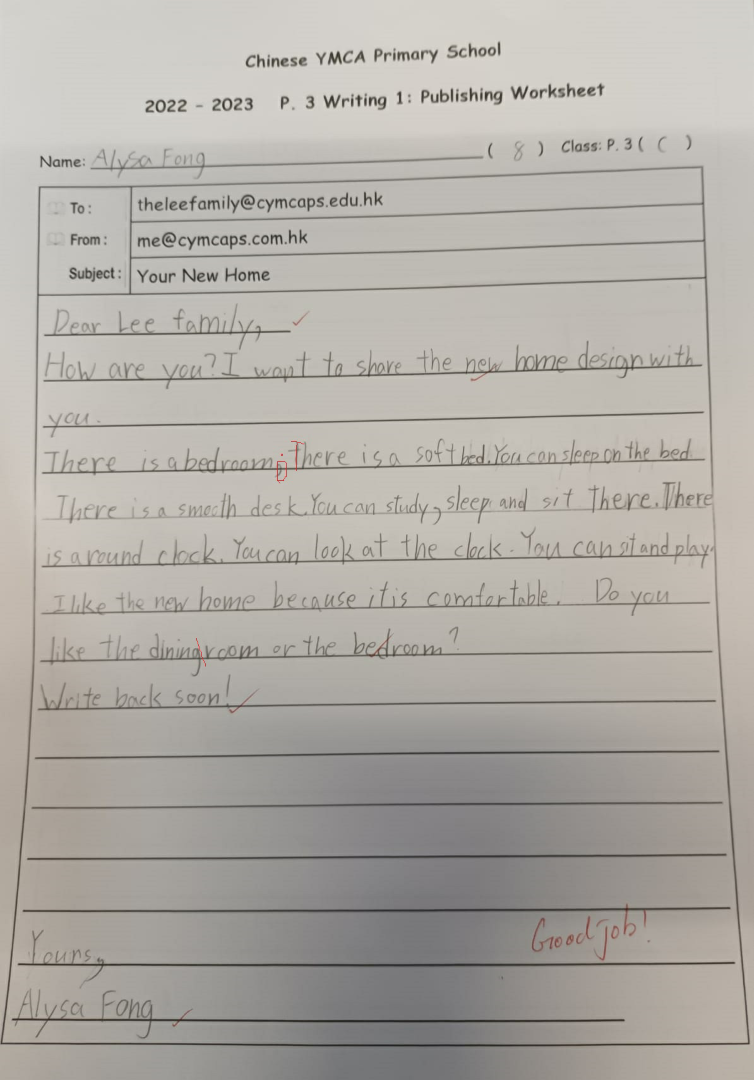 Chinese YMCA Primary School
2022 - 2023 P. 3 Writing 1: Publishing Worksheet
Name: Alysa Fong ( 8 ) Class: P. 3 ( C )
To : theleefamily@cymcaps.edu.hk
From : me@cymcaps.com.hk
Subject : Your New Home
Dear Lee family,
How are you? I want to share the new home design with
you.
There is a bedroom. There is a soft bed. You can sleep on the bed
There is a smooth desk. You can study, sleep and sit there. There
is a round clock. You can look at the clock. You can sit and play.
I like the new home because it is comfortable. Do you
like the dining room or the bedroom?
Write back soon!
Good job!
Yours,
Alysa Fong